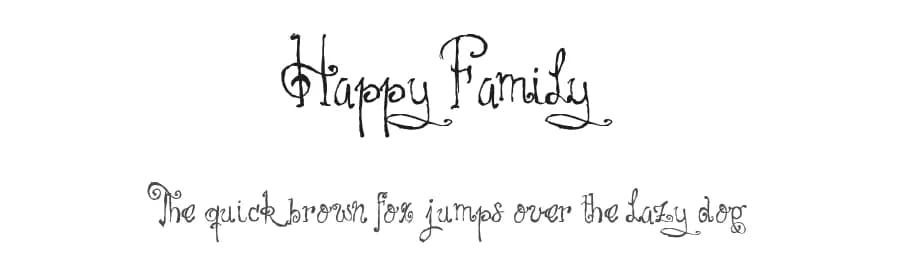 Happy Family
The quick brown fox jumps over the lazy dog